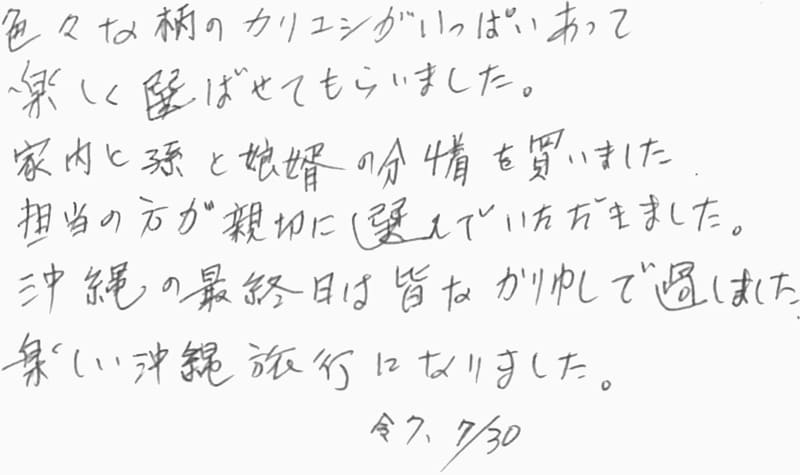 色々な柄のカリユシがいっぱいあって
楽しく選ばせてもらいました。
家内と孫と娘婿の分4着を買いました
担当の方が親切に選んでいただきました。
沖縄の最終日は皆なかりゆしで過しました
楽しい沖縄旅行になりました。
令7、7/30